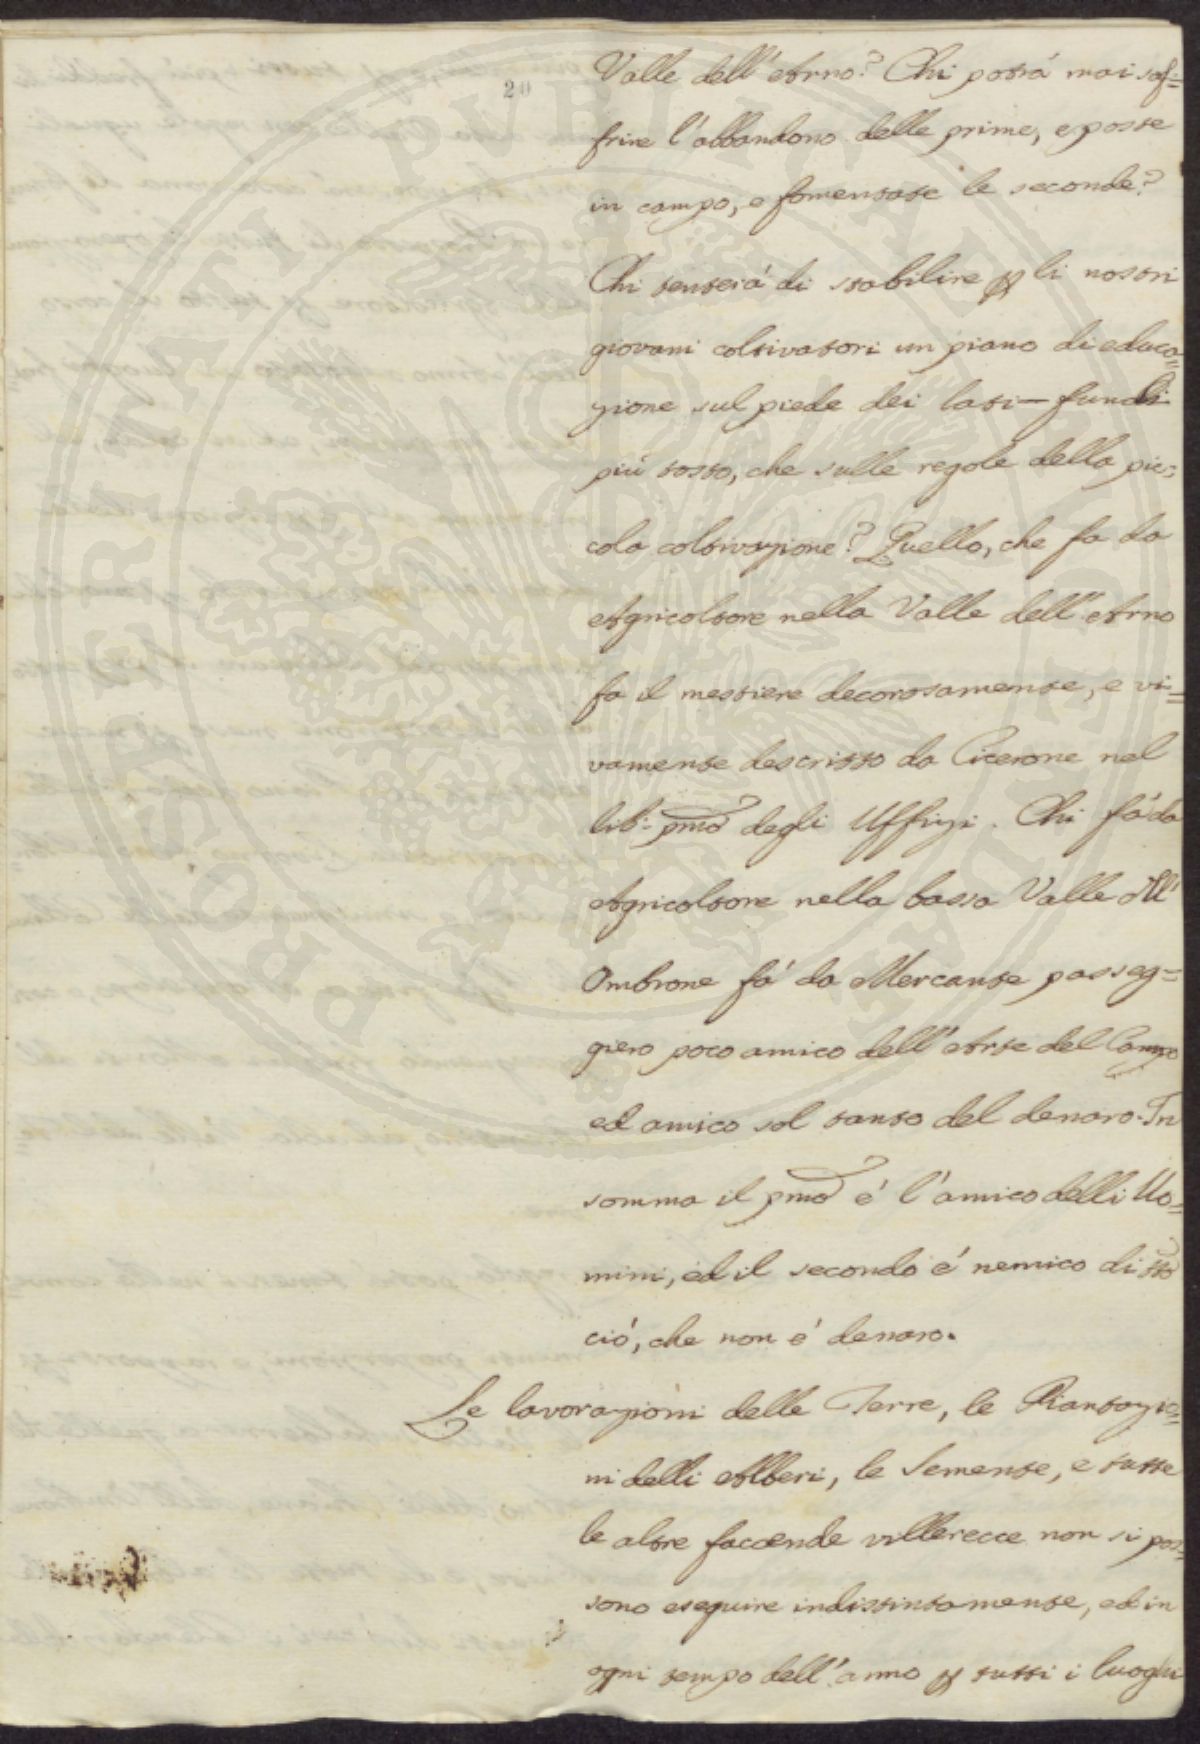 20
Valle dell'Arno? Chi potrà mai sof=
frire l'abbandono delle prime, e posse
in campo, e fomentate le seconde?
Chi tenterà di stabilire p li nostri
giovani coltivatori un piano di educa=
zione sul piede dei lati-fundi
più tosto, che sulle regole della pic=
cola coltivazione? Quello, che fa da
Agricoltore nella Valle dell'Arno
fa il mestiere decorosamente, e vi=
vamente descritto da Cicerone nel
lib: pmo degli Uffizi. Chi fà da
Agricoltore nella bassa Valle dell'
Ombrone fà da Mercante passeg=
giero poco amico dell'Arte del Campo
ed amico sol tanto del denaro. In
somma il pmo é l'amico delli Uo=
mini, ed il secondo é nemico di tto
ciò, che non é denaro.
Le lavorazioni delle Terre, le Piantazio=
ni delli Alberi, le Semente, e tutte
le altre faccende villerecce non si pos=
sono eseguire indistintamente, ed in
ogni tempo dell'anno p tutti i luoghi
PROSPERITATI PUBLICAE AUGENDAE